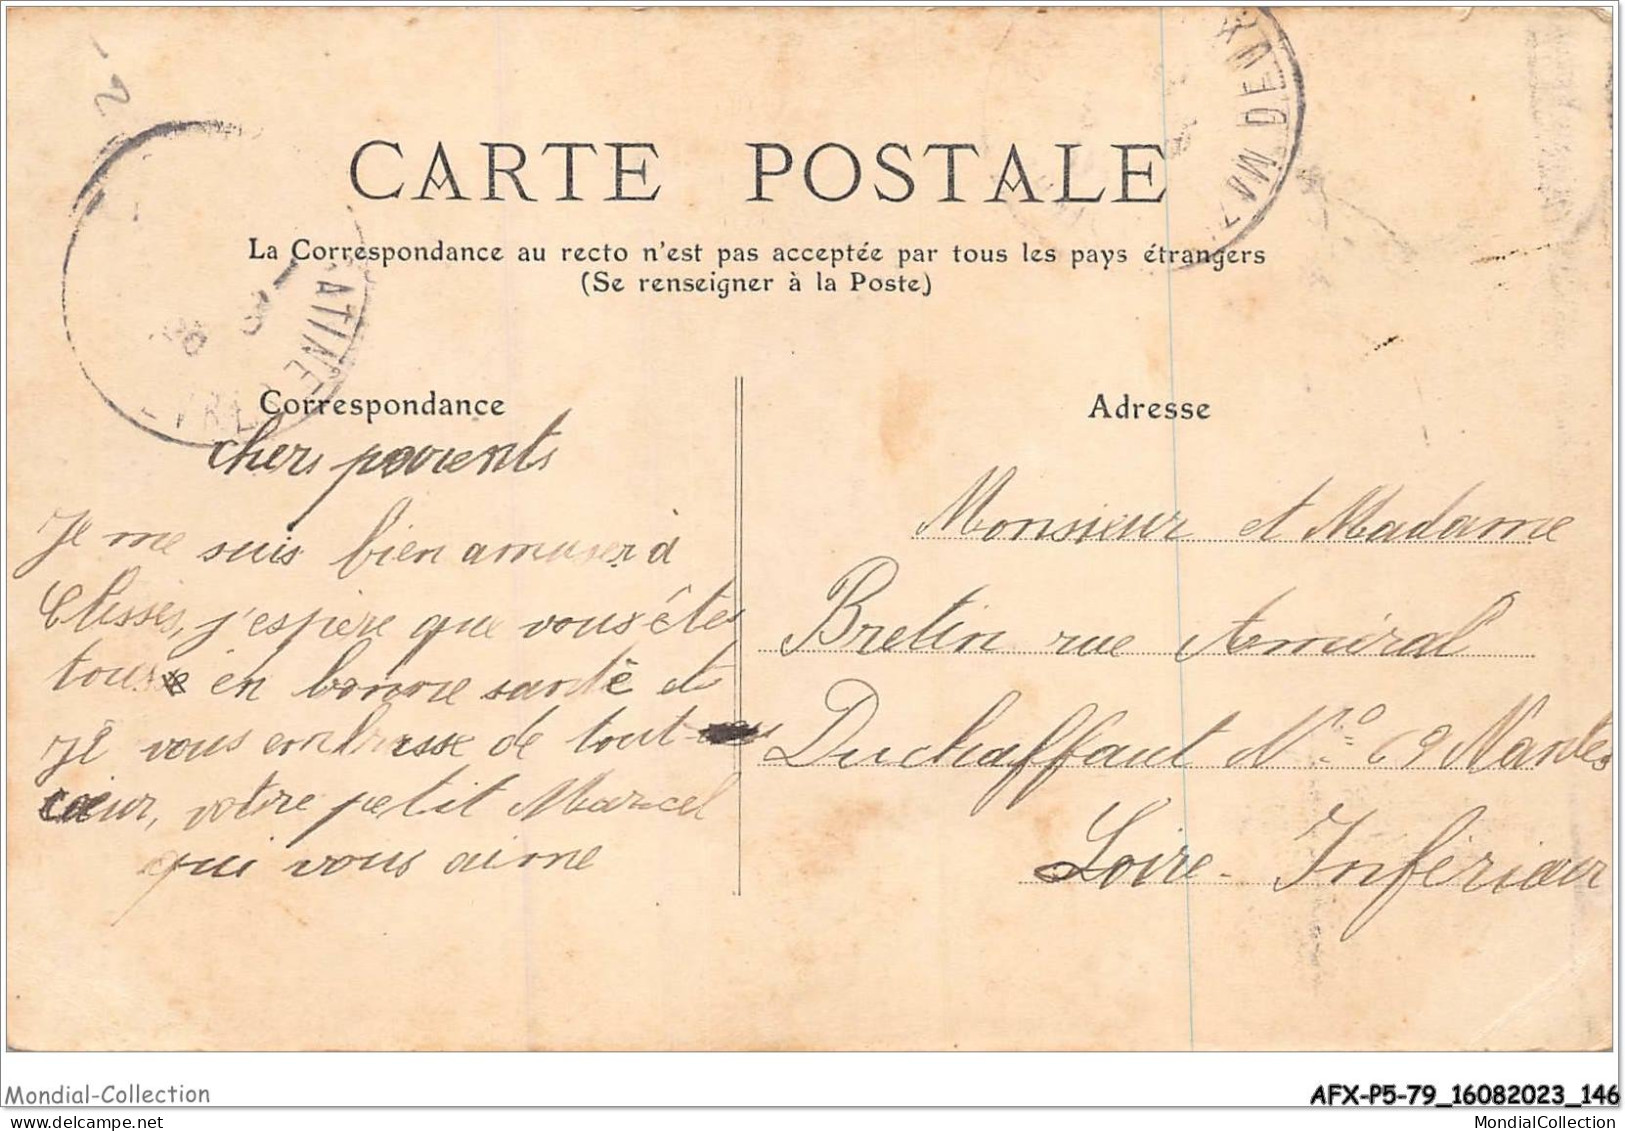 CARTE POSTALE
La Correspondance au recto n'est pas acceptée par tous les pays étrangers
(Se renseigner à la Poste)
Correspondance
chers parents
Je me suis bien amuser à
Clisses, j'espère que vous êtes
tous en bonne santé et
je vous embrasse de tout
cœur, votre petit Marcel
qui vous aime
Adresse
Monsieur et Madame
Bretin rue Amiral
Duchaffaut Nº 69 Nantes
Loire-Inférieur
Mondial-Collection
AFX-P5-79_16082023_146
www.MondialCollection.com